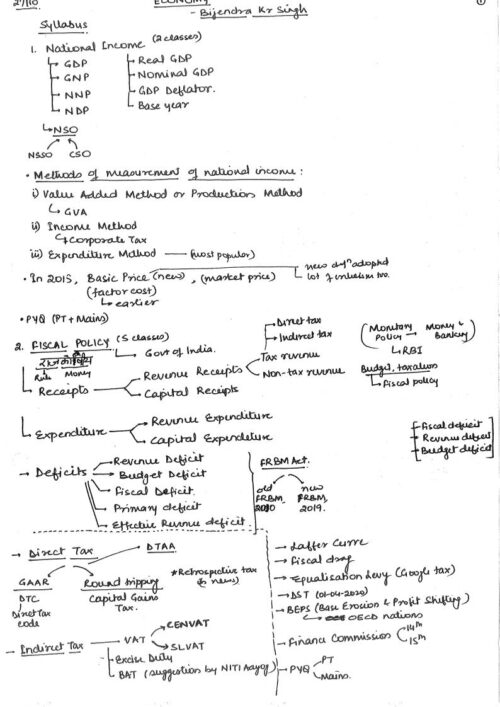 27/10
ECONOMY
- Bijendra Kr Singh
①
Syllabus
1. National Income (2 classes)
GDP
GNP
NNP
NDP
Real GDP
Nominal GDP
GDP Deflator.
Base year
NSO
NSSO CSO
• Methods of measurement of national income:
i) Value Added Method or Production Method
GVA
ii) Income Method
Corporate Tax
iii) Expenditure Method — (most popular)
• In 2015, Basic Price (new), (market price)
new defn adopted
lot of criticism too.
(factor cost)
earlier
• PYQ (PT + Mains)
2. FISCAL POLICY (5 classes)
Govt of India.
Rule Money
Receipts
Revenue Receipts
Tax revenue
Direct tax
Indirect tax
Non-tax revenue
Capital Receipts
(Monetary Policy → Money & Banking)
RBI
Budget, taxation
Fiscal policy
Expenditure
Revenue Expenditure
Capital Expenditure
Fiscal deficit
Revenue deficit
Budget deficit
→ Deficits
Revenue Deficit
Budget Deficit
Fiscal Deficit
Primary deficit
Effective Revenue deficit.
FRBM Act.
old FRBM
new FRBM, 2019.
→ Direct Tax
DTAA
GAAR
DTC
Direct tax code
Round tripping
Capital Gains Tax.
*Retrospective tax
→ Indirect Tax
VAT
CENVAT
SLVAT
Excise Duty
BAT (suggestion by NITI Aayog)
→ Laffer Curve
→ Fiscal drag
→ Equalisation Levy (Google tax)
→ DST (01-04-2020)
→ BEPS (Base Erosion & Profit Shifting)
OECD nations
→ Finance Commission
14th
15th
→ PYQ
PT
Mains.